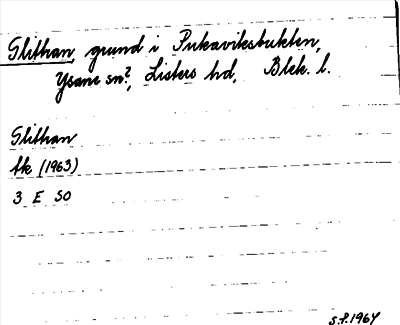 Glithan, grund i Pukaviksbukten,
Ysane sn?, Listers hd, Blek. l.
Glithan
sk (1963)
3 E SO
S.F. 1964